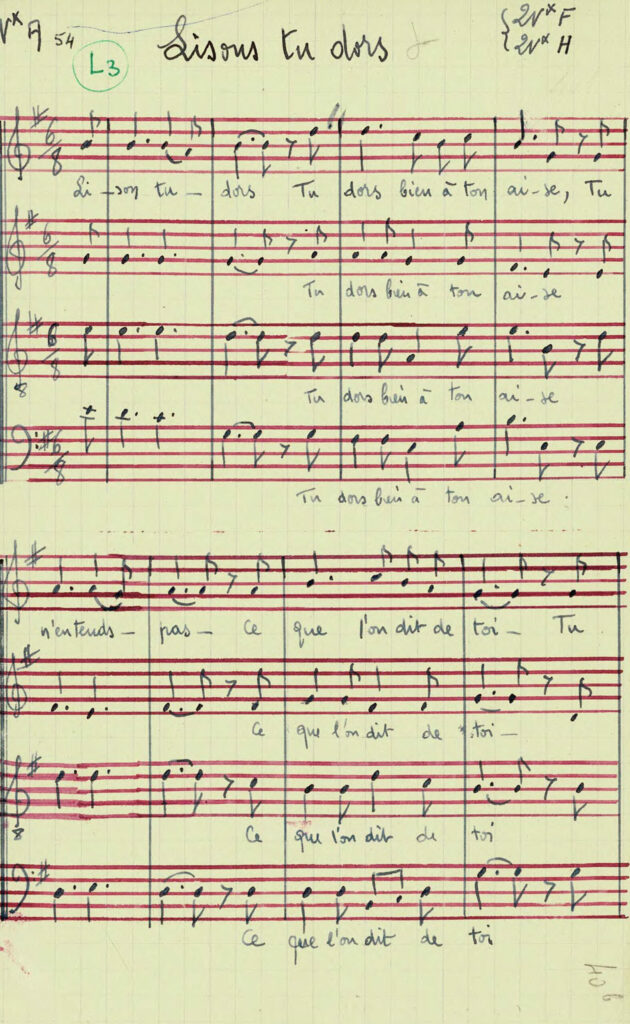 N× A 54
L3
Lisons tu dors
2N× F
2N× H
6/8
Li-son tu- dors Tu dors bien à ton ai-se, Tu
6/8
Tu dors bien à ton ai-se
6/8
8
Tu dors bien à ton ai-se
6/8
Tu dors bien à ton ai-se.
n'entends- pas- Ce que l'on dit de toi- Tu
Ce que l'on dit de toi-
8
Ce que l'on dit de toi
Ce que l'on dit de toi